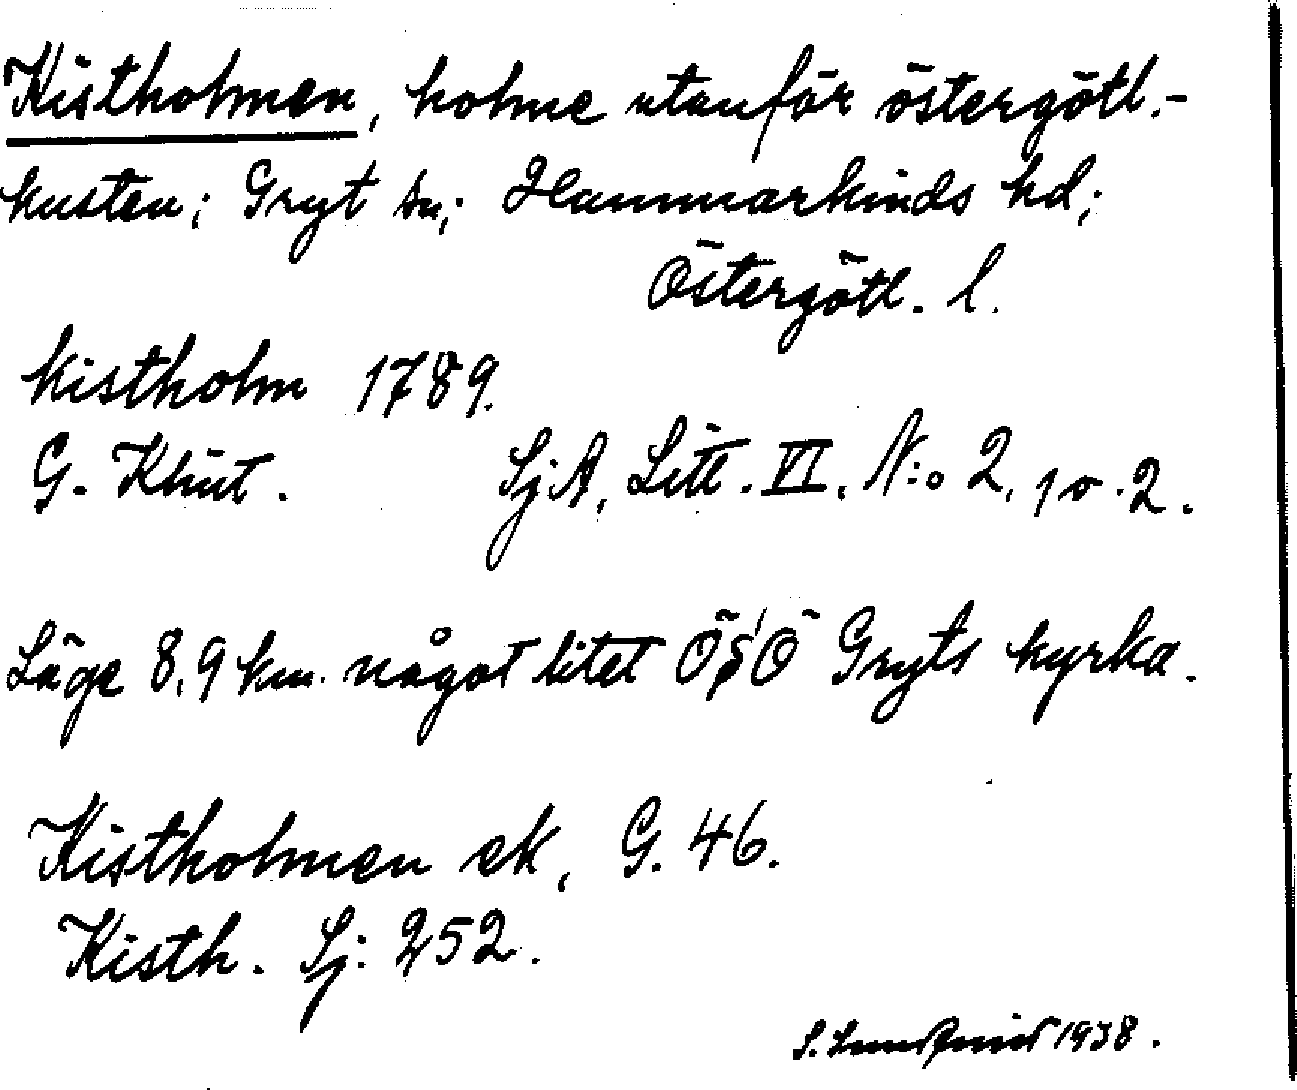 Kistholmen, holme utanför östergötl.-
kusten; Gryt sn; Hammarkinds hd;
Östergötl. l.
Kistholm 1789.
G. Klint. SjA, Litt. VI. N:o 2, 1 o. 2.
Läge 8,9 km. något litet ÖSÖ Gryts kyrka.
Kistholmen ek, G. 46.
Kisth. Sj: 252.
S. Lundqvist 1938.